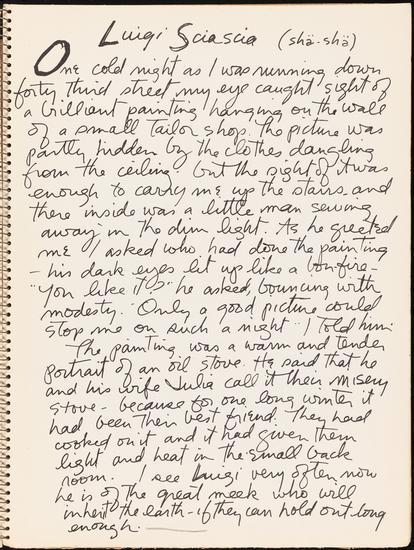 Luigi Sciascia (shä-shä)
One cold night as I was running down
forty third street my eye caught sight of
a brilliant painting hanging on the wall
of a small tailor shop. The picture was
partly hidden by the clothes dangling
from the ceiling. but the sight of it was
enough to carry me up the stairs and
there inside was a little man sewing
away in the dim light. As he greeted
me I asked who had done the painting
- his dark eyes lit up like a bonfire -
"You like it?" he asked, bouncing with
modesty. "Only a good picture could
stop me on such a night" I told him.
The painting was a warm and tender
portrait of an oil stove. He said that he
and his wife Julia call it their misery
stove - because for one long winter it
had been their best friend. They had
cooked on it and it had given them
light and heat in the small back
room. I see Luigi very often now
he is of the great meek who will
inherit the earth - if they can hold out long
enough.